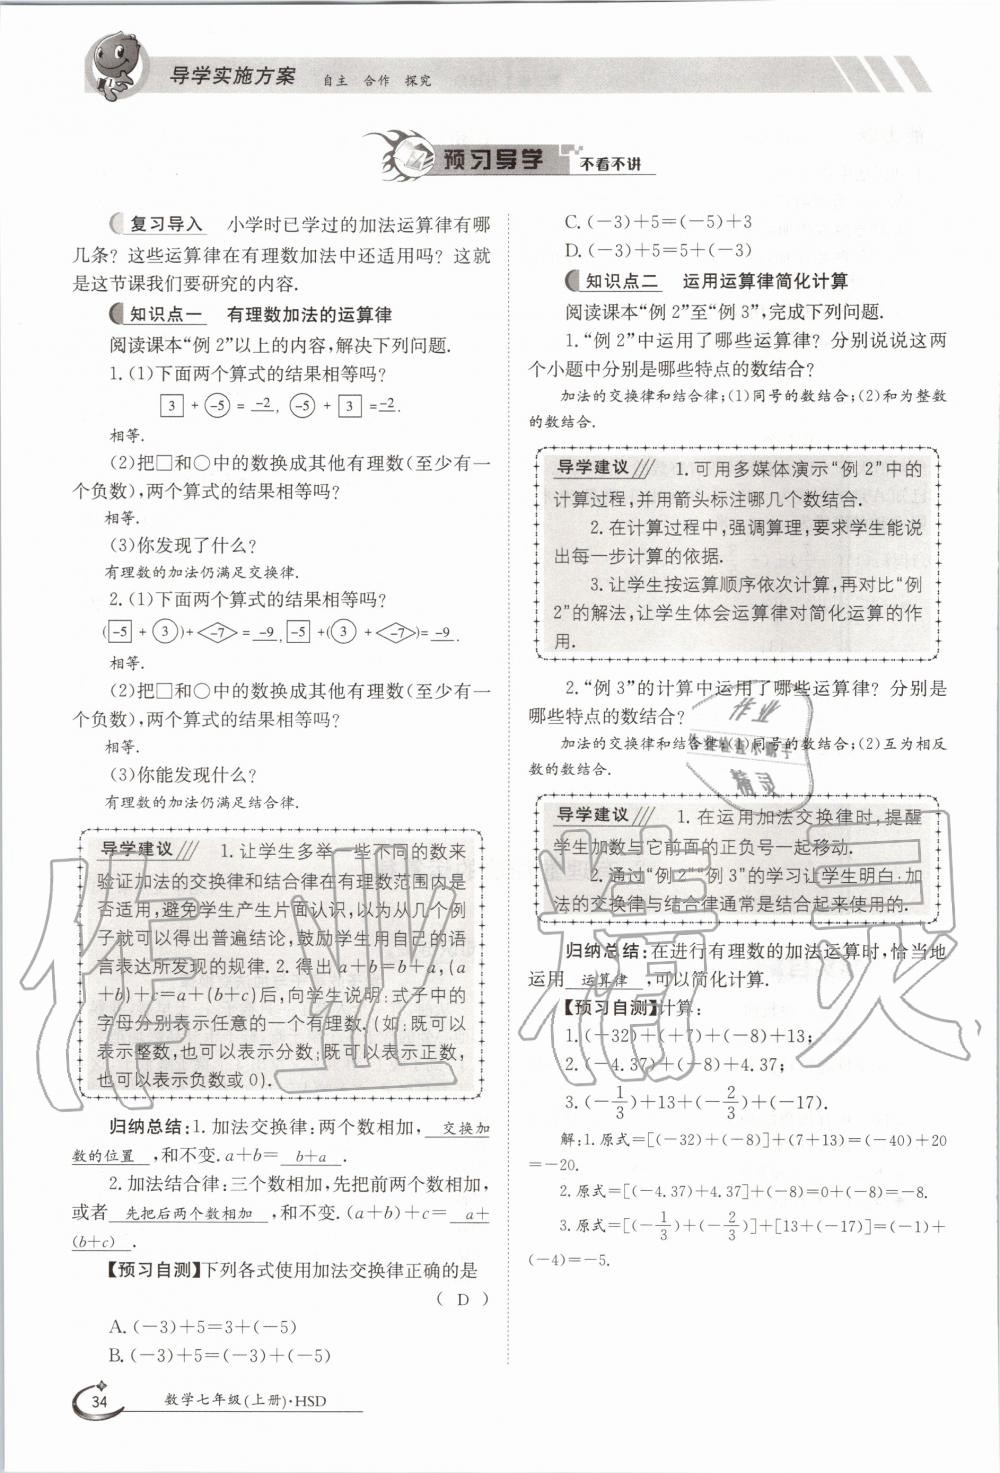 导学实施方案 自主 合作 探究
预习导学 不看不讲
复习导入 小学时已学过的加法运算律有哪
几条？这些运算律在有理数加法中还适用吗？这就
是这节课我们要研究的内容.
知识点一 有理数加法的运算律
阅读课本“例 2”以上的内容,解决下列问题.
1.(1)下面两个算式的结果相等吗?
3 + -5 = -2, -5 + 3 =-2.
相等.
(2)把□和○中的数换成其他有理数(至少有一
个负数),两个算式的结果相等吗?
相等.
(3)你发现了什么?
有理数的加法仍满足交换律.
2.(1)下面两个算式的结果相等吗?
(-5 + 3)+-7 = -9,-5 +(3 + -7)= -9.
相等.
(2)把□和○中的数换成其他有理数(至少有一
个负数),两个算式的结果相等吗?
相等.
(3)你能发现什么?
有理数的加法仍满足结合律.
导学建议 1.让学生多举一些不同的数来
验证加法的交换律和结合律在有理数范围内是
否适用,避免学生产生片面认识,以为从几个例
子就可以得出普遍结论,鼓励学生用自己的语
言表达所发现的规律. 2.得出a+b=b+a,(a
+b)+c=a+(b+c)后,向学生说明:式子中的
字母分别表示任意的一个有理数.(如:既可以
表示整数,也可以表示分数;既可以表示正数,
也可以表示负数或0).
归纳总结:1.加法交换律:两个数相加, 交换加
数的位置 ,和不变.a+b= b+a .
2.加法结合律:三个数相加,先把前两个数相加,
或者 先把后两个数相加 ,和不变.(a+b)+c= a+
(b+c) .
【预习自测】下列各式使用加法交换律正确的是
( D )
A.(-3)+5=3+(-5)
B.(-3)+5=(-5)+(-5)
C.(-3)+5=(-5)+3
D.(-3)+5=5+(-3)
知识点二 运用运算律简化计算
阅读课本“例 2”至“例 3”,完成下列问题.
1.“例 2”中运用了哪些运算律?分别说说这两
个小题中分别是哪些特点的数结合?
加法的交换律和结合律;(1)同号的数结合;(2)和为整数
的数结合.
导学建议 1.可用多媒体演示“例 2”中的
计算过程,并用箭头标注哪几个数结合.
2.在计算过程中,强调算理,要求学生能说
出每一步计算的依据.
3.让学生按运算顺序依次计算,再对比“例
2”的解法,让学生体会运算律对简化运算的作
用.
2.“例 3”的计算中运用了哪些运算律?分别是
哪些特点的数结合?
加法的交换律和结合律;(1)同号的数结合;(2)互为相反
数的数结合.
导学建议 1.在运用加法交换律时,提醒
学生加数与它前面的正负号一起移动.
2.通过“例 2”“例 3”的学习让学生明白:加
法的交换律与结合律通常是结合起来使用的.
归纳总结:在进行有理数的加法运算时,恰当地
运用 运算律 ,可以简化计算.
【预习自测】计算:
1.(-32)+(+7)+(-8)+13;
2.(-4.37)+(-8)+4.37;
3.(-1/3)+13+(-2/3)+(-17).
解:1.原式=[(-32)+(-8)]+(7+13)=(-40)+20
=-20.
2.原式=[(-4.37)+4.37]+(-8)=0+(-8)=-8.
3.原式=[(-1/3)+(-2/3)]+[13+(-17)]=(-1)+
(-4)=-5.
作业
精灵
作业精灵
34 数学七年级(上册)·HSD